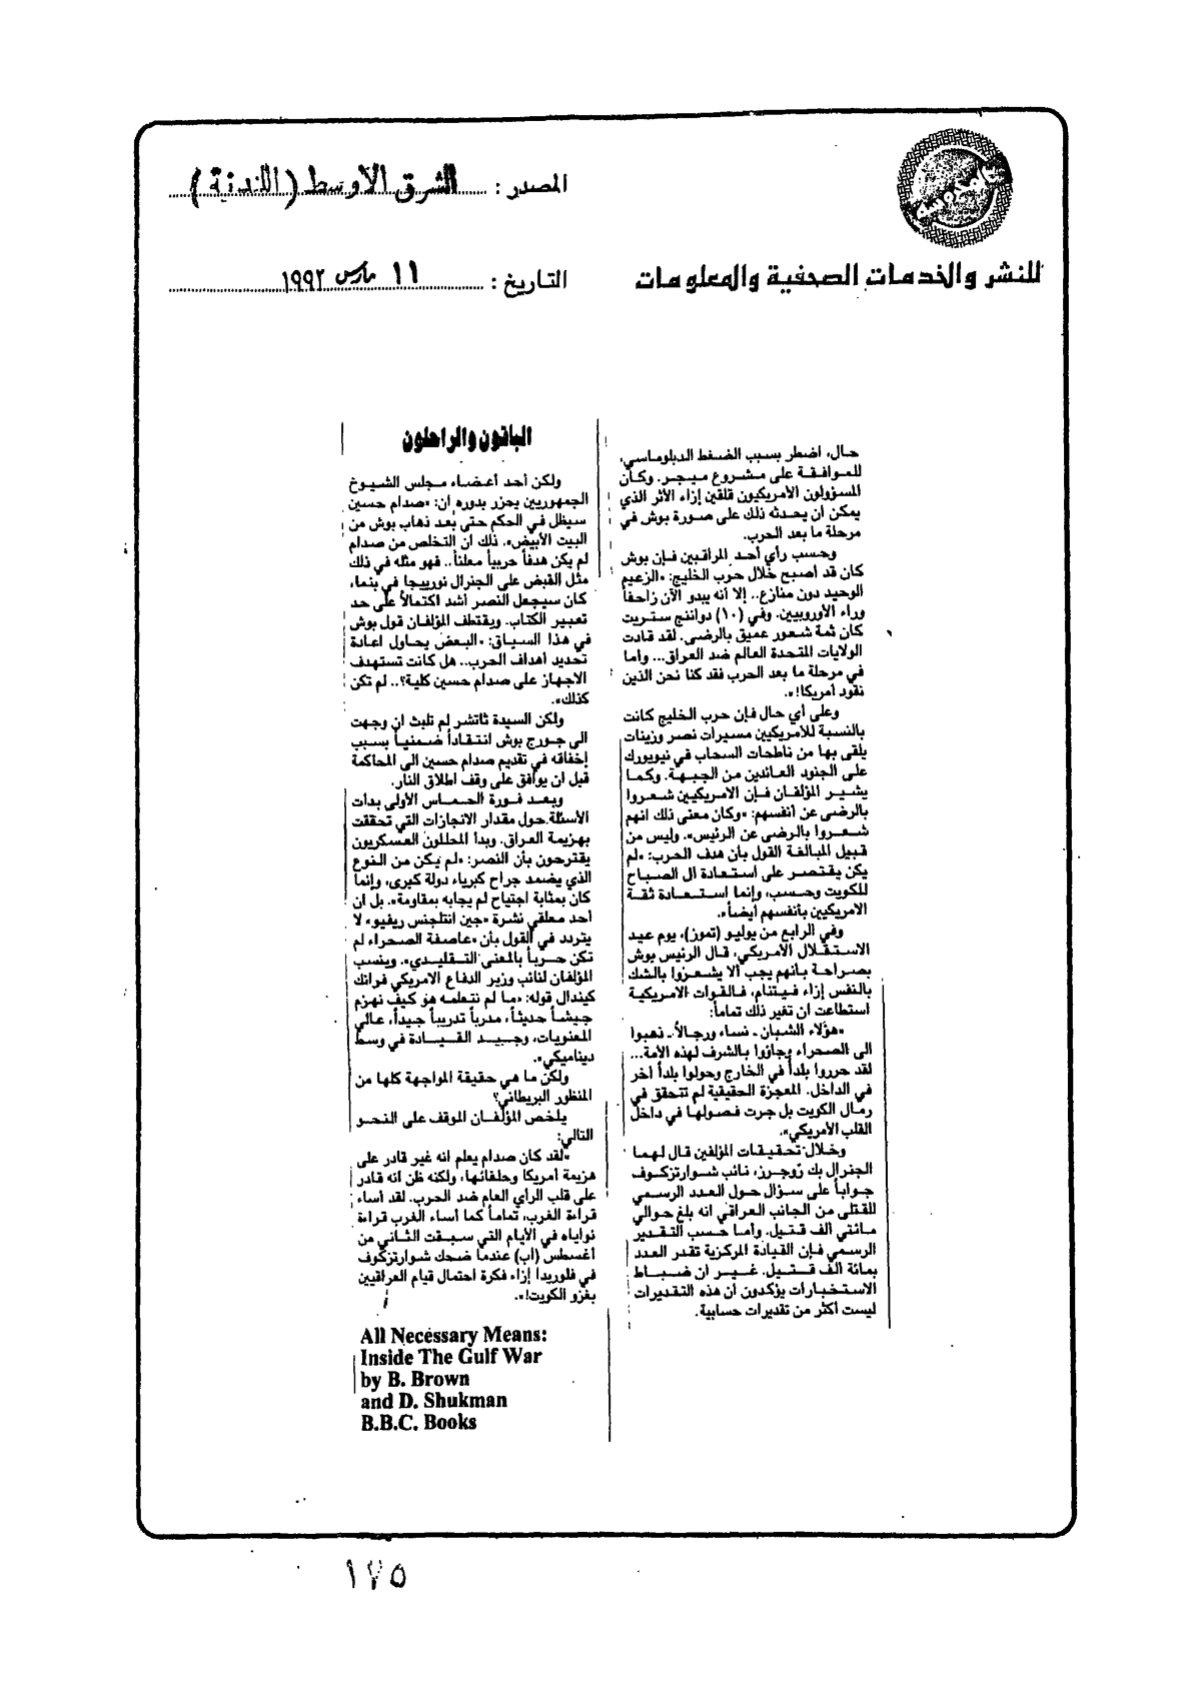 المصدر : الشرق الأوسط (اللندنية)
للنشر والخدمات الصحفية والمعلومات
التاريخ : ١١ مارس ١٩٩٢
حال، اضطر بسبب الضغط الدبلوماسي،
للموافقة على مشروع ميجر. وكان
المسؤولون الأمريكيون قلقين إزاء الأثر الذي
يمكن أن يحدثه ذلك على صورة بوش في
مرحلة ما بعد الحرب.
وحسب رأي أحد المراقبين فإن بوش
كان قد أصبح خلال حرب الخليج: «الزعيم
الوحيد دون منازع.. إلا أنه يبدو الآن زاحفاً
وراء الأوروبيين. وفي (١٠) داوننج ستريت
كان ثمة شعور عميق بالرضى. لقد قادت
الولايات المتحدة العالم ضد العراق... وأما
في مرحلة ما بعد الحرب فقد كنا نحن الذين
نقود أمريكا!».
وعلى أي حال فإن حرب الخليج كانت
بالنسبة للأمريكيين مسيرات نصر وزينات
يلقى بها من ناطحات السحاب في نيويورك
على الجنود العائدين من الجبهة. وكما
يشير المؤلفان فإن الامريكيين شعروا
بالرضى عن أنفسهم: «وكان معنى ذلك انهم
شعروا بالرضى عن الرئيس». وليس من
قبيل المبالغة القول بأن هدف الحرب: «لم
يكن يقتصر على استعادة ال الصباح
للكويت وحسب، وإنما استعادة ثقة
الامريكيين بأنفسهم أيضاً».
وفي الرابع من يوليو (تموز)، يوم عيد
الاستقلال الأمريكي، قال الرئيس بوش
بصراحة بأنهم يجب ألا يشعروا بالشك
بالنفس إزاء فيتنام، فالقوات الامريكية
استطاعت ان تغير ذلك تماماً:
«هؤلاء الشبان ـ نساء ورجالاً ـ ذهبوا
الى الصحراء وجازوا بالشرف لهذه الأمة...
لقد حرروا بلداً في الخارج وحولوا بلداً آخر
في الداخل. المعجزة الحقيقية لم تتحقق في
رمال الكويت بل جرت فصولها في داخل
القلب الأمريكي».
وخلال تحقيقات المؤلفين قال لهما
الجنرال بك روجرز، نائب شوارتزكوف
جواباً على سؤال حول العدد الرسمي
للقتلى من الجانب العراقي انه بلغ حوالي
مائتي ألف قتيل. وأما حسب التقدير
الرسمي فإن القيادة المركزية تقدر العدد
بمائة ألف قتيل. غير ان ضباط
الاستخبارات يؤكدون أن هذه التقديرات
ليست أكثر من تقديرات حسابية.
الباقون والراحلون
ولكن أحد أعضاء مجلس الشيوخ
الجمهوريين يحزر بدوره ان: «صدام حسين
سيظل في الحكم حتى بعد ذهاب بوش من
البيت الأبيض». ذلك ان التخلص من صدام
لم يكن هدفاً حربياً معلناً.. فهو مثله في ذلك
مثل القبض على الجنرال نورييجا في بنما،
كان سيجعل النصر أشد اكتمالاً على حد
تعبير الكتاب. ويقتطف المؤلفان قول بوش
في هذا السياق: «البعض يحاول اعادة
تحديد أهداف الحرب.. هل كانت تستهدف
الاجهاز على صدام حسين كلية؟.. لم تكن
كذلك».
ولكن السيدة ثاتشر لم تلبث ان وجهت
الى جورج بوش انتقاداً ضمنياً بسبب
إخفاقه في تقديم صدام حسين الى المحاكمة
قبل ان يوافق على وقف اطلاق النار.
وبعد فورة الحماس الأولى بدأت
الأسئلة حول مقدار الانجازات التي تحققت
بهزيمة العراق. وبدأ المحللون العسكريون
يقترحون بأن النصر: «لم يكن من النوع
الذي يضمد جراح كبرياء دولة كبرى، وإنما
كان بمثابة اجتياح لم يجابه بمقاومة». بل ان
أحد معلقي نشرة «جين انتلجنس ريفيو» لا
يتردد في القول بأن «عاصفة الصحراء لم
تكن حرباً بالمعنى التقليدي». وينسب
المؤلفان لنائب وزير الدفاع الامريكي فرانك
كيندال قوله: «ما لم نتعلمه هو كيف نهزم
جيشاً حديثاً، مدرباً تدريباً جيداً، عالي
المعنويات، وجيد القيادة في وسط
ديناميكي».
ولكن ما هي حقيقة المواجهة كلها من
المنظور البريطاني؟
يلخص المؤلفان الموقف على النحو
التالي:
«لقد كان صدام يعلم انه غير قادر على
هزيمة أمريكا وحلفائها، ولكنه ظن انه قادر
على قلب الرأي العام ضد الحرب. لقد أساء
قراءة الغرب، تماماً كما أساء الغرب قراءة
نواياه في الأيام التي سبقت الثاني من
أغسطس (آب) عندما ضحك شوارتزكوف
في فلوريدا إزاء فكرة احتمال قيام العراقيين
بغزو الكويت!».
All Necessary Means:
Inside The Gulf War
by B. Brown
and D. Shukman
B.B.C. Books
١٧٥